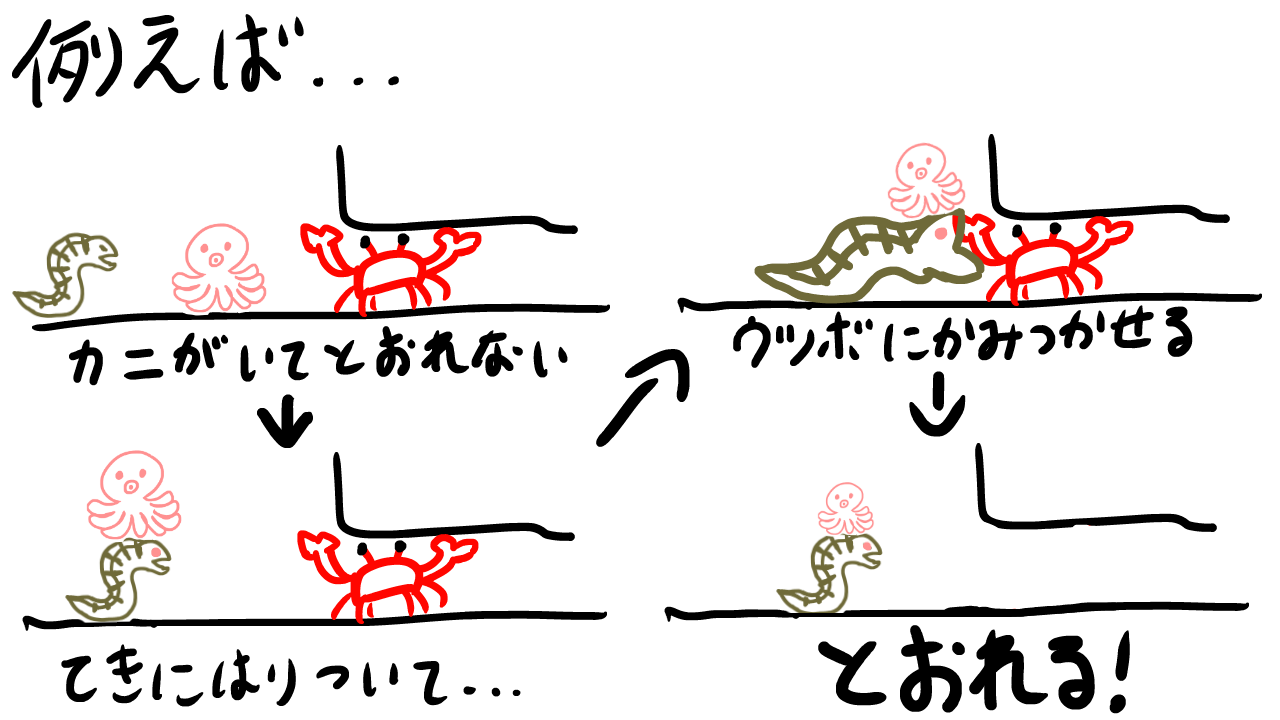 例えば...
カニがいてとおれない
てきにはりついて...
ウツボにかみつかせる
とおれる!